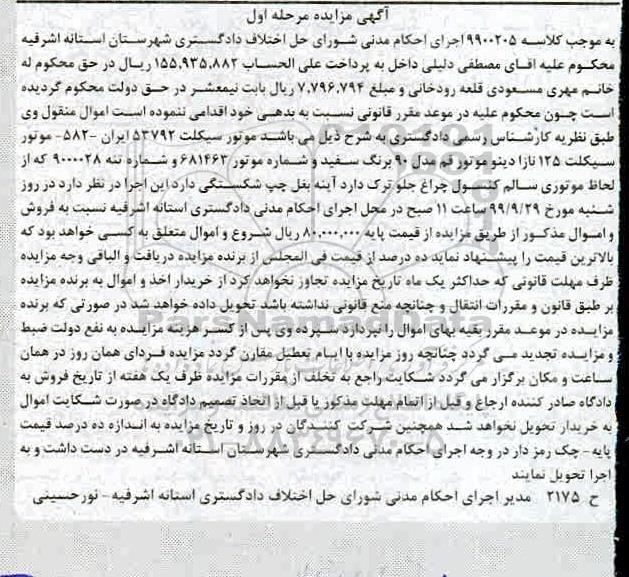 آگهی مزایده مرحله اول
به موجب کلاسه ۹۹۰۰۲۰۵ اجرای احکام مدنی شورای حل اختلاف دادگستری شهرستان استانه اشرفیه
محکوم علیه اقای مصطفی دلیلی داخل به پرداخت علی الحساب ۱۵۵,۹۳۵,۸۸۲ ریال در حق محکوم له
خانم مهری مسعودی قلعه رودخانی و مبلغ ۷,۷۹۶,۷۹۴ ریال بابت نیمعشر در حق دولت محکوم گردیده
است چون محکوم علیه در موعد مقرر قانونی نسبت به بدهی خود اقدامی ننموده است اموال منقول وی
طبق نظریه کارشناس رسمی دادگستری به شرح ذیل می باشد موتور سیکلت ۵۳۷۹۲ ایران -۵۸۲- موتور
سیکلت ۱۲۵ نازا دینو موتور قم مدل ۹۰ برنگ سفید و شماره موتور ۶۸۱۴۶۳ و شماره تنه ۹۰۰۰۰۲۸ که از
لحاظ موتوری سالم کنسول چراغ جلو ترک دارد آینه بغل چپ شکستگی دارد این اجرا در نظر دارد در روز
شنبه مورخ ۹۹/۹/۲۹ ساعت ۱۱ صبح در محل اجرای احکام مدنی دادگستری استانه اشرفیه نسبت به فروش
و اموال مذکور از طریق مزایده از قیمت پایه ۸۰,۰۰۰,۰۰۰ ریال شروع و اموال متعلق به کسی خواهد بود که
بالاترین قیمت را پیشنهاد نماید ده درصد از قیمت فی المجلس از برنده مزایده دریافت و الباقی وجه مزایده
ظرف مهلت قانونی که حداکثر یک ماه تاریخ مزایده تجاوز نخواهد کرد از خریدار اخذ و اموال به برنده مزایده
بر طبق قانون و مقررات انتقال و چنانچه منع قانونی نداشته باشد تحویل داده خواهد شد در صورتی که برنده
مزایده در موعد مقرر بقیه بهای اموال را نپردازد سپرده وی پس از کسر هزینه مزایده به نفع دولت ضبط
و مزایده تجدید می گردد چنانچه روز مزایده با ایام تعطیل مقارن گردد مزایده فردای همان روز در همان
ساعت و مکان برگزار می گردد شکایت راجع به تخلف از مقررات مزایده ظرف یک هفته از تاریخ فروش به
دادگاه صادر کننده ارجاع و قبل از اتمام مهلت مذکور یا قبل از اتخاذ تصمیم دادگاه در صورت شکایت اموال
به خریدار تحویل نخواهد شد همچنین شرکت کنندگان در روز و تاریخ مزایده به اندازه ده درصد قیمت
پایه - چک رمز دار در وجه اجرای احکام مدنی دادگستری شهرستان استانه اشرفیه در دست داشت و به
اجرا تحویل نمایند
ح ۲۱۷۵ مدیر اجرای احکام مدنی شورای حل اختلاف دادگستری استانه اشرفیه - نورحسینی
ParsNamadData